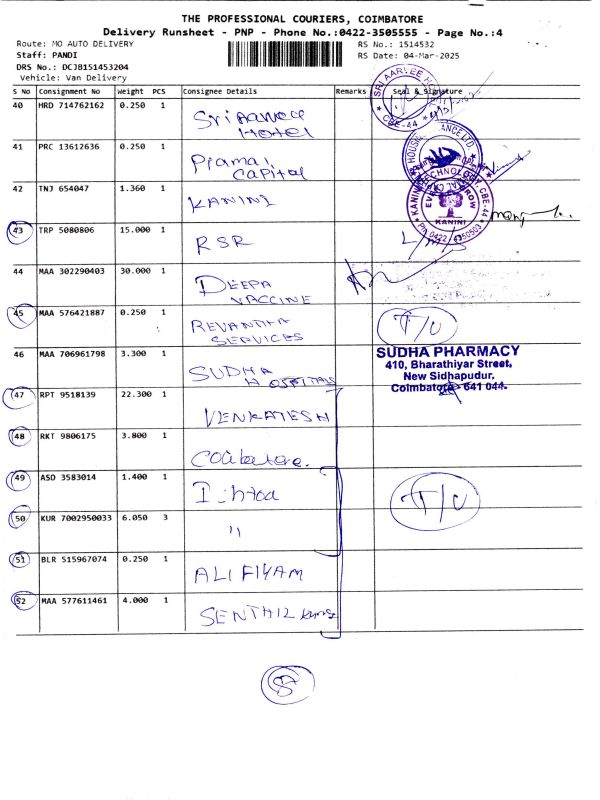 THE PROFESSIONAL COURIERS, COIMBATORE
Delivery Runsheet - PNP - Phone No.:0422-3505555 - Page No.:4
Route: MO AUTO DELIVERY RS No.: 1514532
Staff: PANDI RS Date: 04-Mar-2025
DRS No.: DCJB151453204
Vehicle: Van Delivery
S No Consignment No Weight PCS Consignee Details Remarks Seal & Signature
40 HRD 714762162 0.250 1 Sri Aarvee Hotel
SRI AARVEE HO
CBE-44
41 PRC 13612636 0.250 1 Piramal Capital
42 TNJ 654047 1.360 1 KANINI
KANINI
CBE-44
Ph 0422
43 TRP 5080806 15.000 1 RSR
44 MAA 302290403 30.000 1 DEEPA VACCINE
45 MAA 576421887 0.250 1 REVANTHA SERVICES T/U
46 MAA 706961798 3.300 1 SUDHA HOSPITALS
SUDHA PHARMACY
410, Bharathiyar Street,
New Sidhapudur,
Coimbatore - 641 044.
47 RPT 9518139 22.300 1 VENKATESH
48 RKT 9806175 3.800 1 Coibatore.
49 ASD 3583014 1.400 1
T/U
50 KUR 7002950033 6.050 3 "
51 BLR 515967074 0.250 1 ALIFIYAM
52 MAA 577611461 4.000 1 SENTHIL Kumar